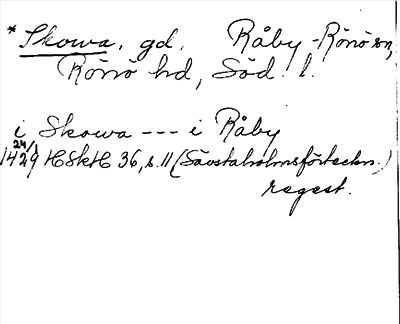 *Skowa, gd. Råby-Rönö sn,
Rönö hd, Söd. l.
i Skowa --- i Råby
1429 24/1 HSkH 36, s. 11 (Sävstaholmsförteckn.)
regest.